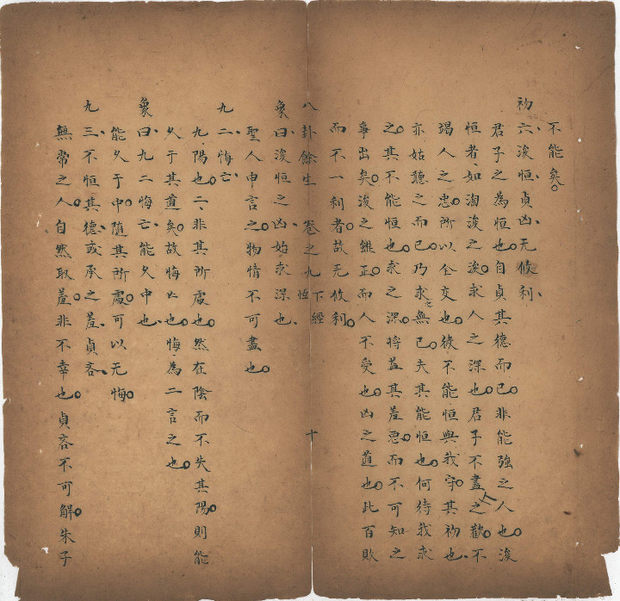 不能矣。
初六、浚恒貞凶、无攸利、
君子之為恒也、自貞其德而已、非能強之人也、浚
恒者、如淘浚之浚、求人之深也、君子不盡人之歡、不
竭人之忠、所以全交也、彼不能恒與我守其初也、
亦姑聽之而已、乃求之無已、夫其能恒也、何待我求
之、其不能恒也、求之深、將益其羞惡而不可知之
事出矣、浚之雖正、而人不受也、凶之道也、比百敗
而不一利者、故无攸利。
八卦餘生 卷之九 下經 恒 十
象曰、浚恒之凶、始求深也、
聖人申言之、物情不可盡也。
九二、悔亡、
九、陽也、二、非其所處也、然在陰而不失其陽、則能
久于其道矣、故悔亡也、悔為二言之也。
象曰、九二悔亡、能久中也、
能久于中、隨其所處、可以无悔。
九三、不恒其德、或承之羞、貞吝、
無常之人、自然取羞、非不幸也、貞吝不可解、朱子